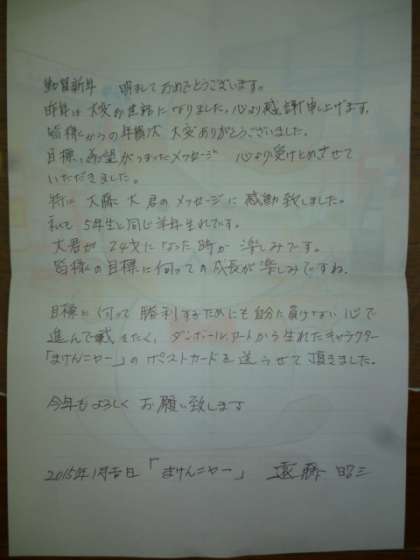 謹賀新年 明けましておめでとうございます。
昨年は大変お世話になりました。心より感謝申し上げます。
皆様からの年賀状 大変ありがとうございました。
目標、希望がつまったメッセージ 心より受けとめさせて
いただきました。
特に 大 君のメッセージに感動致しました。
私も5年生と同じ羊年生れです。
大君が 24才になった時が 楽しみです。
皆様の目標に向っての成長が楽しみですね。
目標に向って 勝利するためにも自分に負けない心で
進んで戴きたく、ダンボールアートから生れたキャラクター
「まけんニャー」のポストカードを送らせて頂きました。
今年もよろしく お願い致します
2015年1月 日 「まけんニャー」 遠藤 昭三